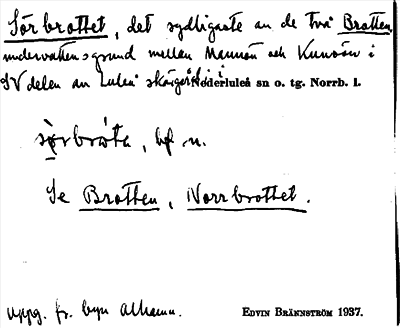 Sörbrottet, det sydligaste av de två Brotten,
undervattensgrund mellan Mannön och Kunoön i
SV delen av Luleå skärgård i Nederluleå sn o. tg. Norrb. l.
sö̀rbrå̀ta, bf n.
Se Brotten, Norrbrottet.
Uppg. fr. byn Alhamn. EDVIN BRÄNNSTRÖM 1937.